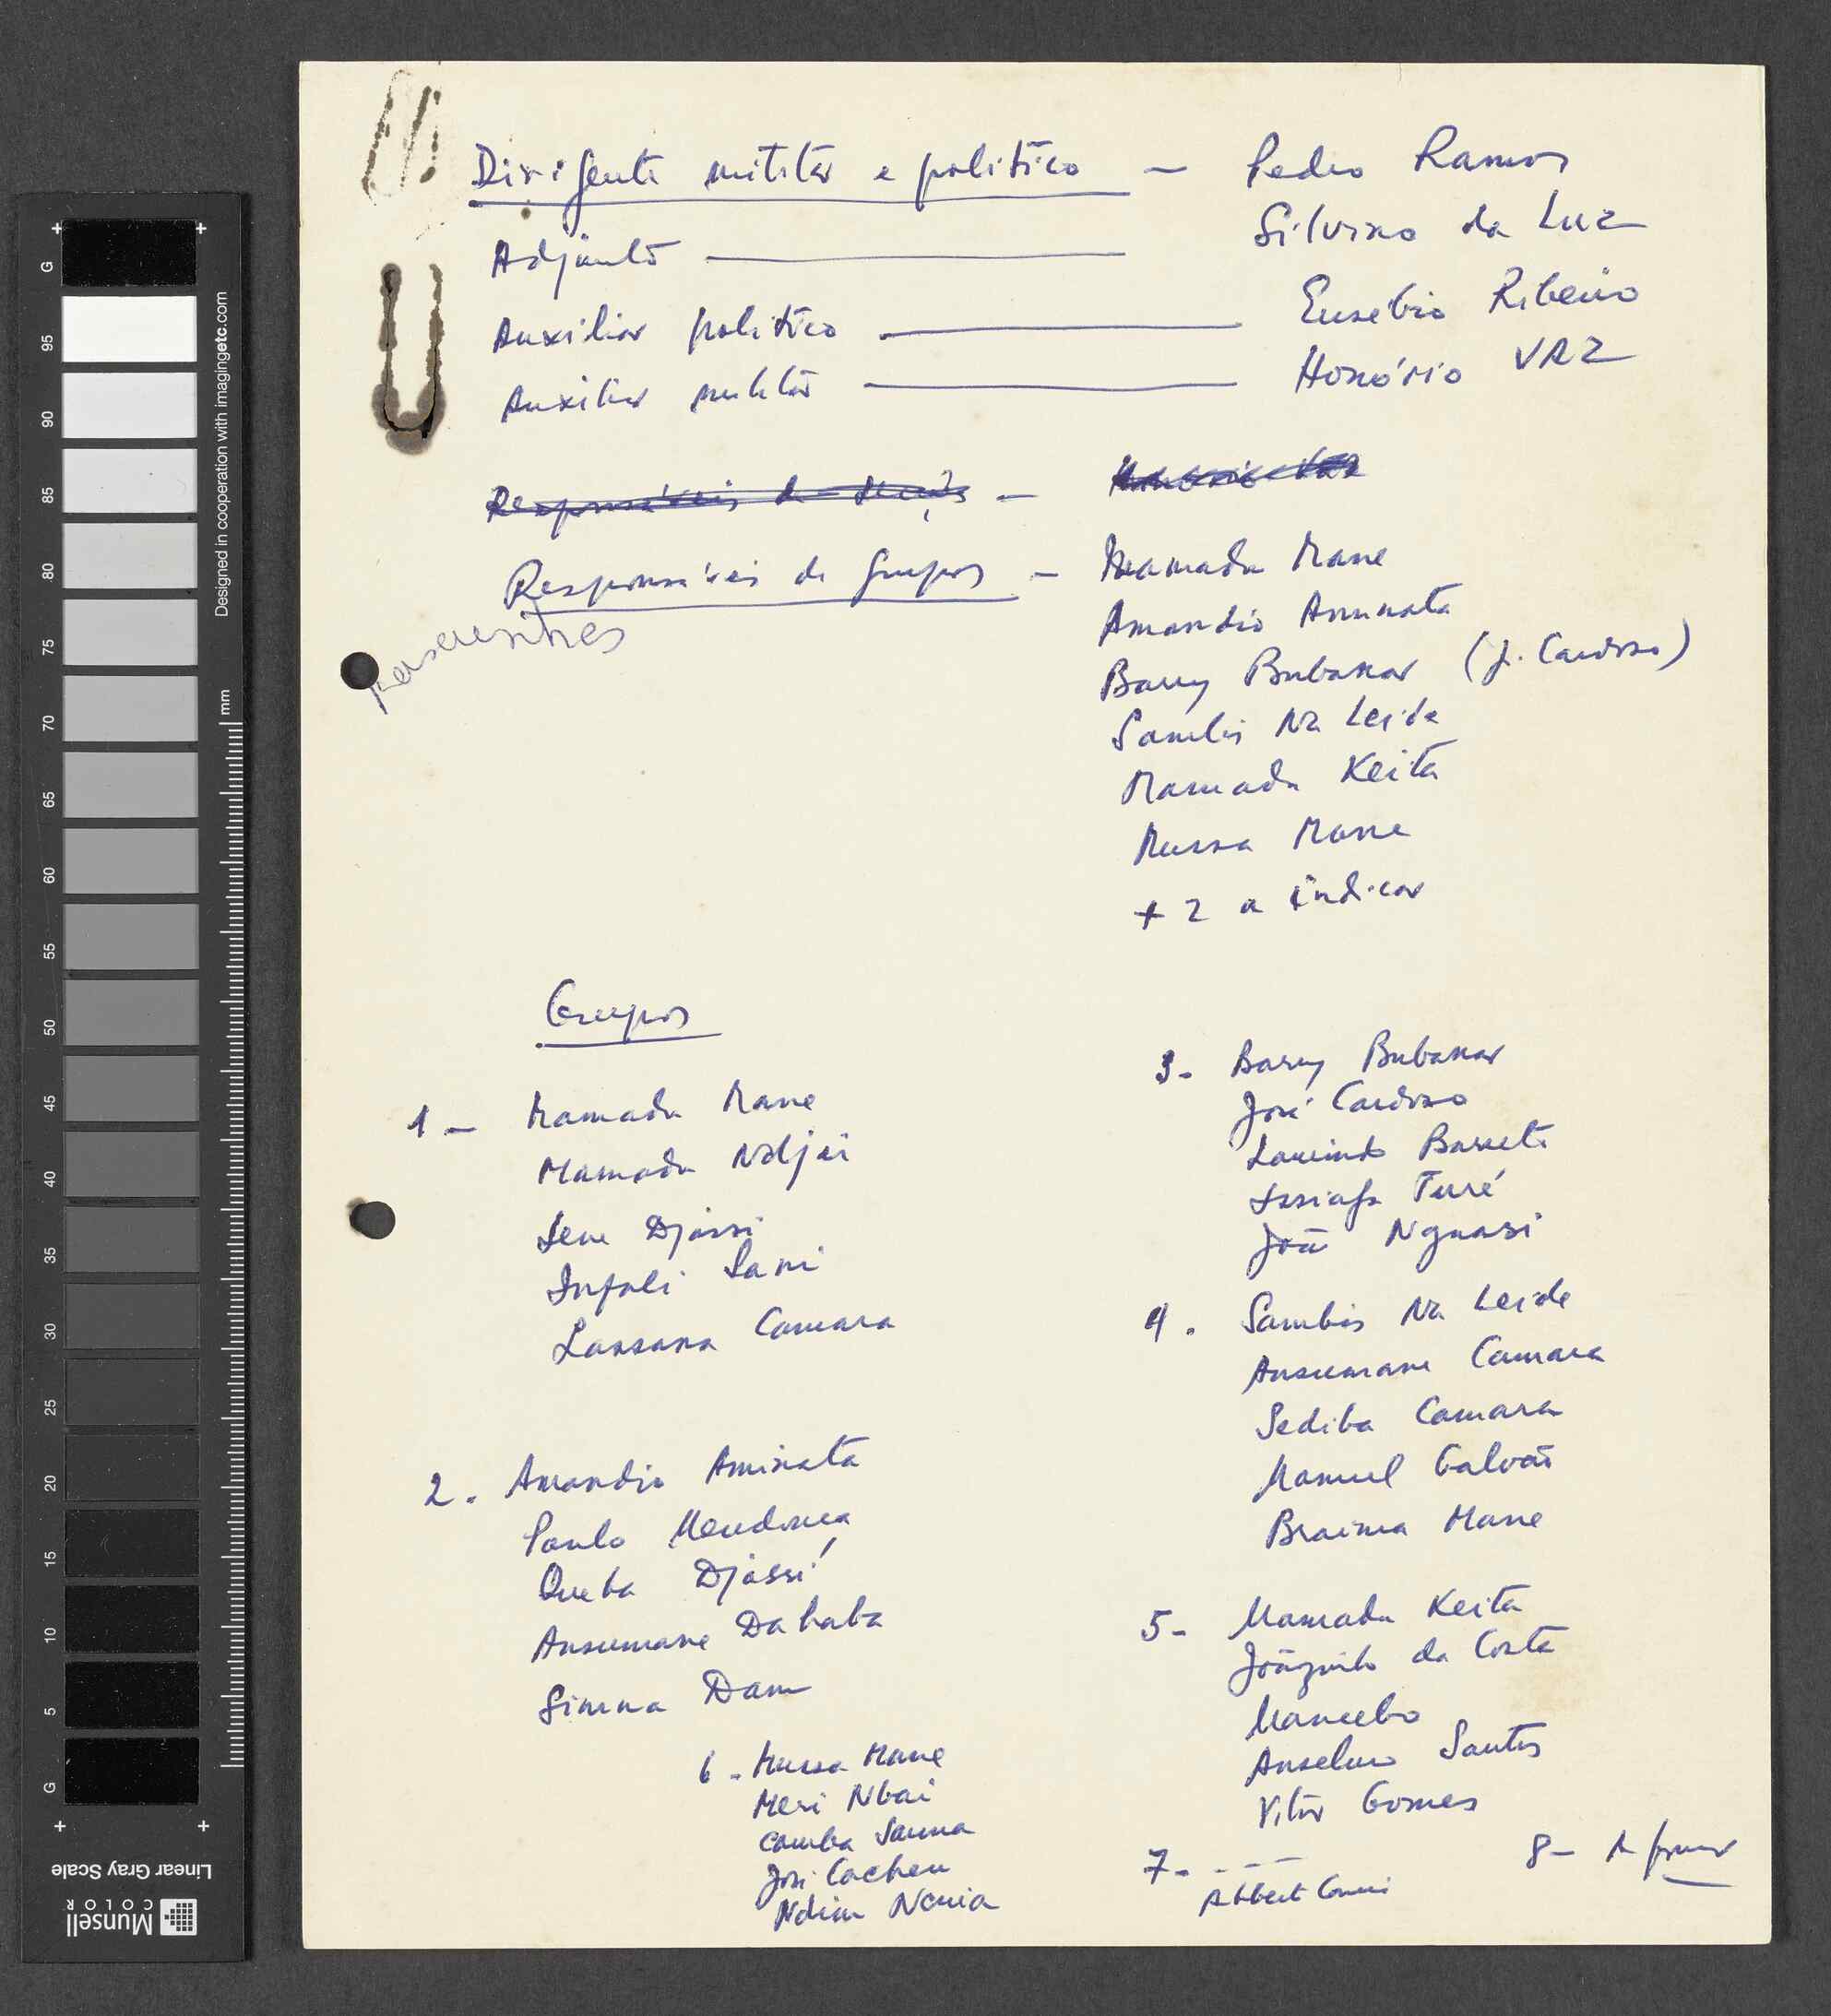 Dirigente militar e politico — Pedro Ramos
Adjunto — Silvino da Luz
Auxiliar politico — Eusébio Ribeiro
Auxiliar militar — Honório VAZ
Responsáveis de —
Responsáveis de Grupos — Mamadu Mane
Amandio Aminata
Barry Bubakar (J. Cardoso)
Sambis Na Leide
Mamadu Keita
Mussa Mane
+ 2 a indicar
Grupos
1 — Mamadu Mane
Mamadu Ndjai
Sene Djassi
Infali Sani
Lassana Camara
2. Amandio Aminata
Paulo Mendonca
Queba Djassi
Ansumane Dahaba
Simna Dam
3- Barry Bubakar
José Cardoso
Laurindo Barreto
Issiafa Turé
João Nguasi
4. Sambis Na Leide
Ansumane Camara
Sediba Camara
Manuel Galvão
Braima Mane
5- Mamadu Keita
Joãozinho da Costa
Mancebo
Anselmo Santos
Vitor Gomes
6- Mussa Mane
Meri Nbai
Camba Sanna
José Cacheu
Ndim
7- ----
8- A formar
Linear Gray Scale
Munsell
COLOR
Designed in cooperation with imagingetc.com
mm
G 95 90 85 80 75 70 65 60 55 50 45 40 35 30 25 20 15 10 5 G